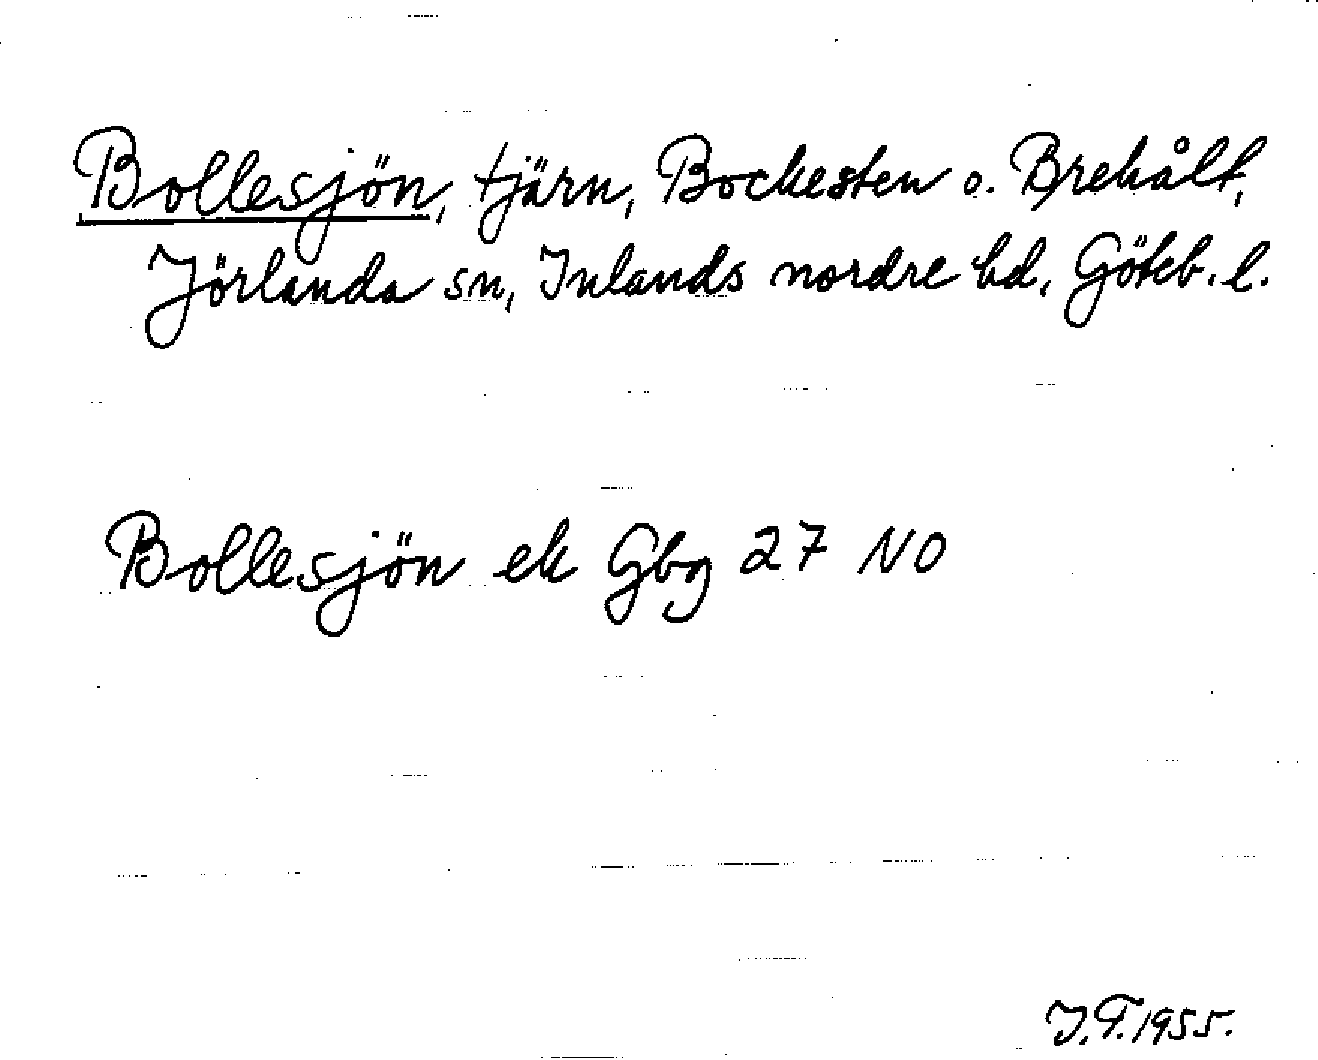 Bollesjön, tjärn, Bockesten o. Brehålt,
Jörlanda sn, Inlands nordre hd, Göteb. l.
Bollesjön ek Gbg 27 NO
J.T. 1955.